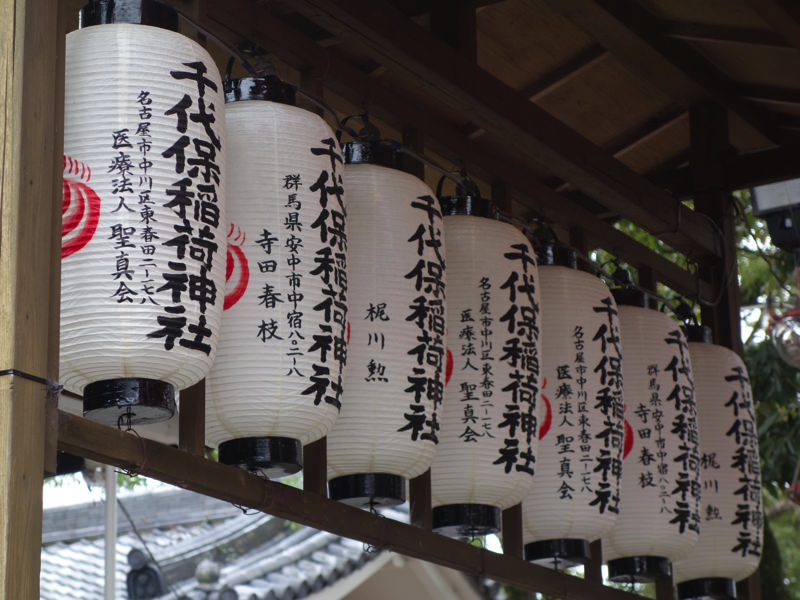 千代保稲荷神社
名古屋市中川区東春田二ー七八
医療法人 聖真会
千代保稲荷神社
群馬県安中市中宿八〇二ー八
寺田春枝
千代保稲荷神社
梶川勲
千代保稲荷神社
名古屋市中川区東春田二ー七八
医療法人 聖真会
千代保稲荷神社
名古屋市中川区東春田二ー七八
医療法人 聖真会
千代保稲荷神社
群馬県安中市中宿八〇二ー八
寺田春枝
千代保稲荷神社
梶川勲